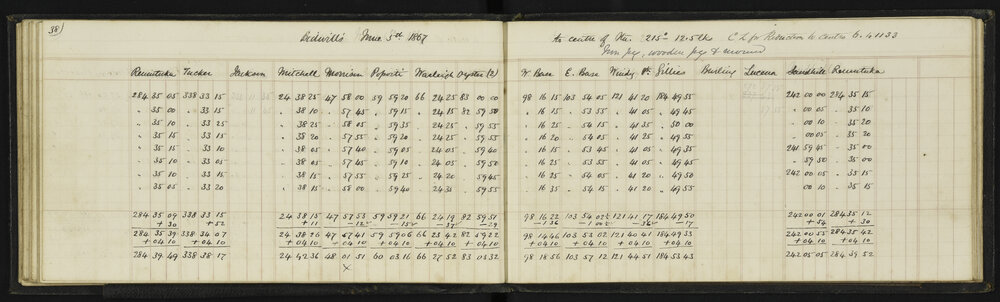 38
Bidwill's June 5th 1867 To centre of Stn. 215° 12.5 lks C L for Reduction to Centre 6.41133
Iron peg, wooden peg & mound
Raumtuka Tucker Jackson Mitchell Morrison Popoiti Wardeigh Oyster (2) W. Base E. Base Windy Pt. Gillies Burling Lucena Sandhill Raumtuka
284 35 05 338 33 15 24 38 25 47 58 00 59 59 20 66 24 25 83 00 00 98 16 15 103 54 05 121 41 20 184 49 55 242 00 00 284 35 15
" 35 00 " 33 15 " 38 10 " 57 45 " 59 15 " 24 15 82 59 50 " 16 15 " 53 55 " 41 05 " 49 45 " 00 05 " 35 10
" 35 10 " 33 25 " 38 25 " 58 05 " 59 35 " 24 25 " 59 55 " 16 25 " 54 15 " 41 35 " 50 00 " 00 10 " 35 20
" 35 15 " 33 15 " 38 20 " 57 55 " 59 20 " 24 25 " 59 55 " 16 20 " 54 05 " 41 25 " 49 55 " 00 05 " 35 20
" 35 15 " 33 10 " 38 05 " 57 40 " 59 05 " 24 05 " 59 40 " 16 25 " 53 45 " 41 05 " 49 45 241 59 45 " 35 00
" 35 10 " 33 05 " 38 05 " 57 45 " 59 10 " 24 05 " 59 50 " 16 25 " 53 55 " 41 05 " 49 45 " 59 50 " 35 00
" 35 10 " 33 15 " 38 15 " 57 55 " 59 25 " 24 20 " 59 45 " 16 25 " 54 05 " 41 20 " 49 50 242 00 05 " 35 15
" 35 05 " 33 20 " 38 15 " 58 00 " 59 40 " 24 35 " 59 55 " 16 35 " 54 15 " 41 20 " 49 55 00 10 " 35 15
284 35 09 338 33 15 24 38 15 47 57 53 59 59 21 66 24 19 82 59 51 98 16 22 103 54 02½ 121 41 17 184 49 50 242 00 01 284 35 12
+ 30 + 52 + 11 - 12 - 15 - 37 - 29 - 1 36 - 1 00½ - 36 - 17 + 54 + 30
284 35 39 338 34 07 24 38 26 47 57 41 59 59 06 66 23 42 82 59 22 98 14 46 103 53 02 121 40 41 184 49 33 242 00 55 284 35 42
+ 04 10 + 04 10 + 04 10 + 04 10 + 04 10 + 04 10 + 04 10 + 04 10 + 04 10 + 04 10 + 04 10 + 04 10 + 04 10
284 39 49 338 38 17 24 42 36 48 01 51 60 03 16 66 27 52 83 03 32 98 18 56 103 57 12 121 44 51 184 53 43 242 05 05 284 39 52
x